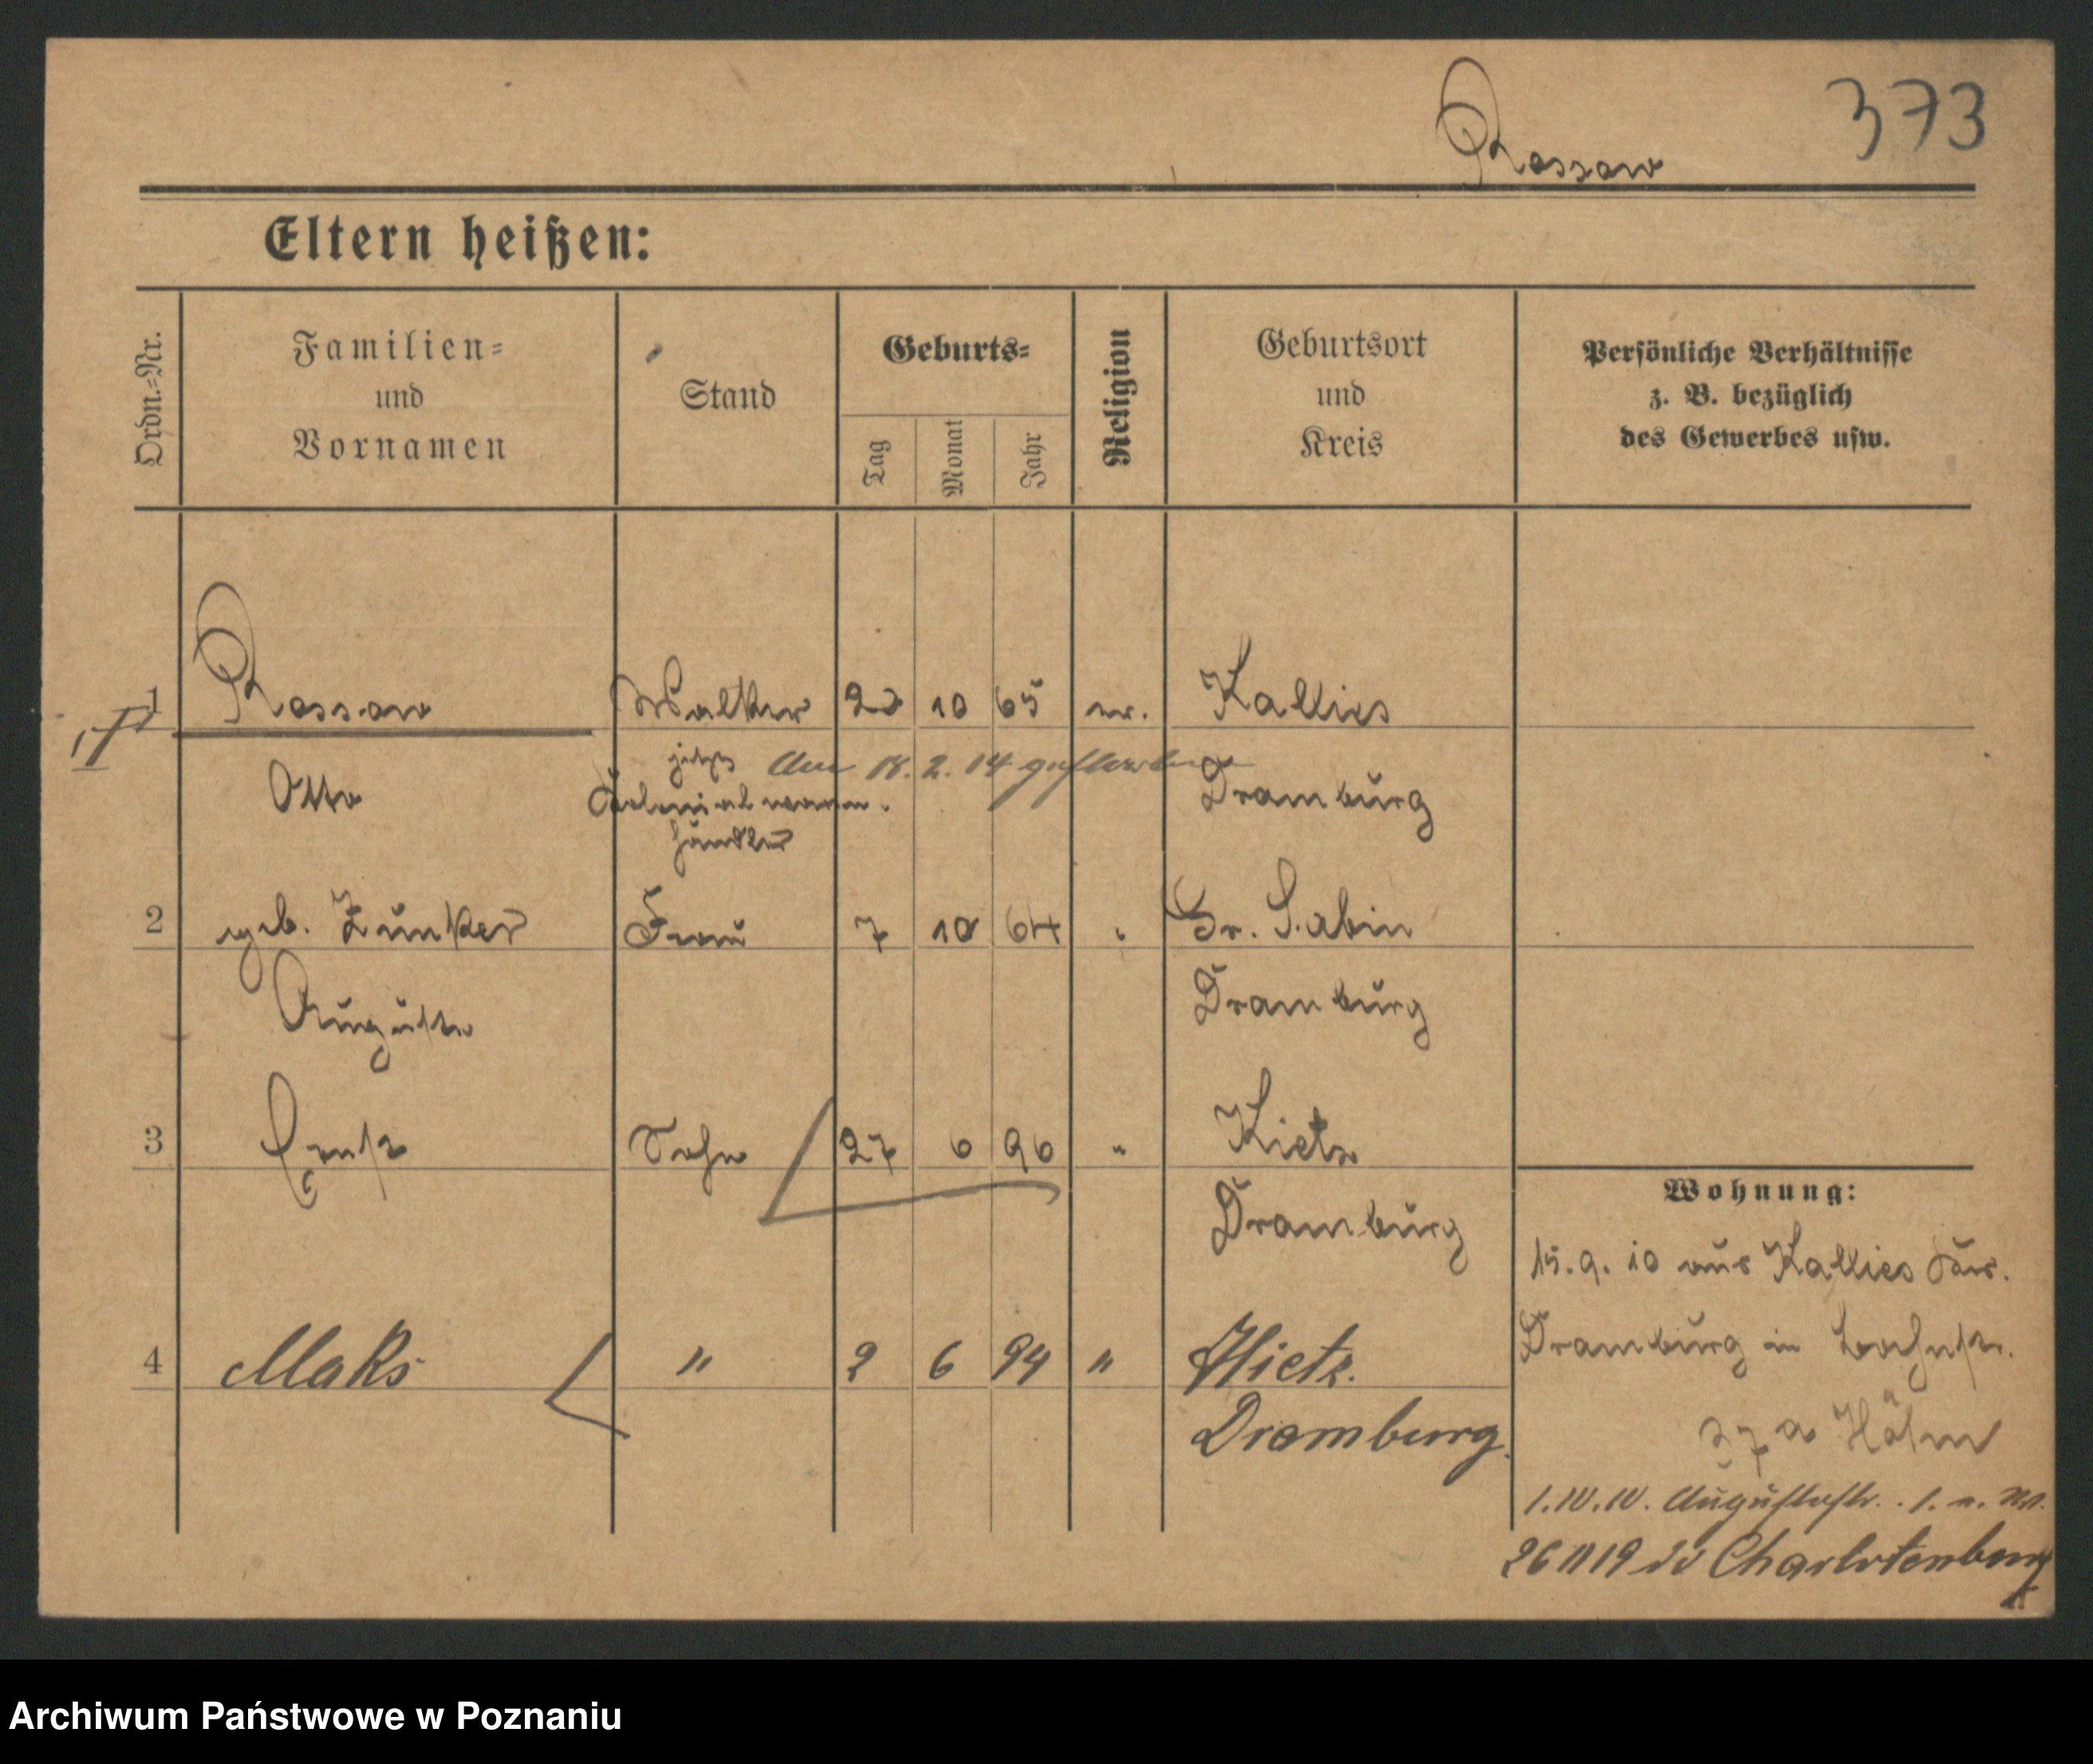 373
Rossow
Eltern heißen:
Ordn.-Nr.
Familien-
und
Vornamen
Stand
Geburts-
Tag
Monat
Jahr
Religion
Geburtsort
und
Kreis
Persönliche Verhältnisse
z. B. bezüglich
des Gewerbes usw.
1 Rossow 10 65 ev. Kallies
Otto jetzt Am 18. 2. 14 gestorben Dramburg
Kolonialwaren-
händler
2 geb. Zunker Frau 7 10 64 " Gr. Sabin
Auguste Dramburg
3 Ernst Sohn 27 6 96 " Kietz
Dramburg
4 Maks " 2 6 94 " Kietz.
Dramburg.
Wohnung:
15. 9. 10 aus Kallies Kr.
Dramburg in
27 a
1. IV. IV. Augustastr. 1.
26 11 19 Charlottenburg
Archiwum Państwowe w Poznaniu